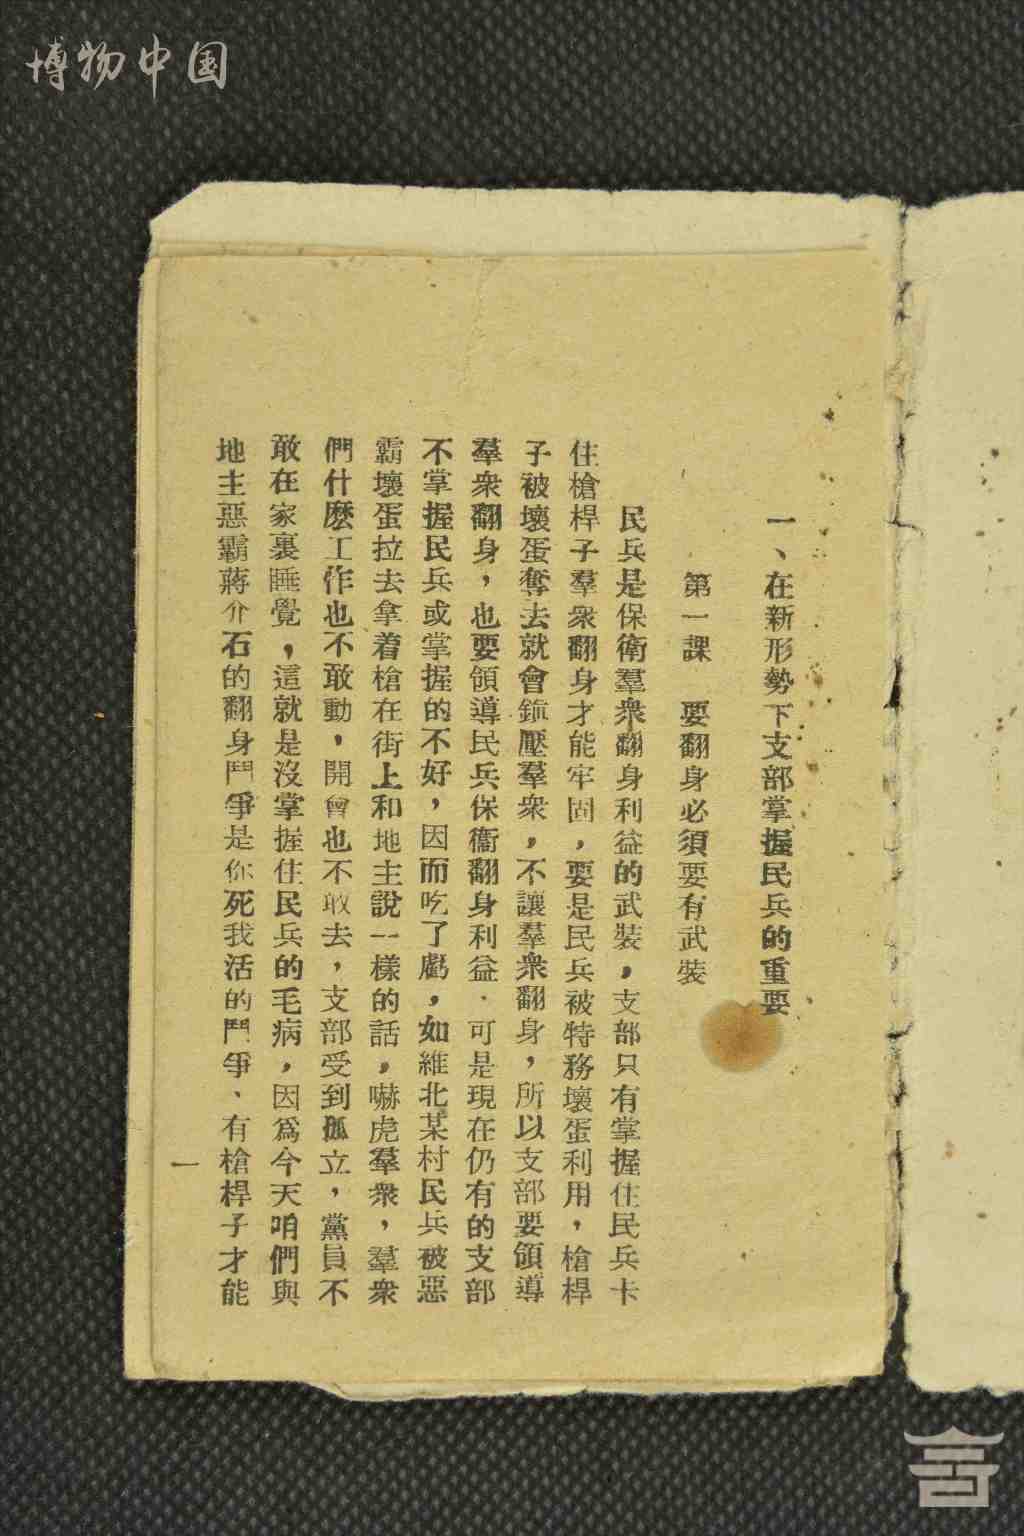 博物中国
一、在新形勢下支部掌握民兵的重要
第一課　要翻身必須要有武裝
民兵是保衛羣衆翻身利益的武裝，支部只有掌握住民兵卡
住槍桿子羣衆翻身才能牢固，要是民兵被特務壞蛋利用，槍桿
子被壞蛋奪去就會鎮壓羣衆，不讓羣衆翻身，所以支部要領導
羣衆翻身，也要領導民兵保衞翻身利益．可是現在仍有的支部
不掌握民兵或掌握的不好，因而吃了虧，如維北某村民兵被惡
霸壞蛋拉去拿着槍在街上和地主說一樣的話，嚇虎羣衆，羣衆
們什麽工作也不敢動，開會也不敢去，支部受到孤立，黨員不
敢在家裏睡覺，這就是沒掌握住民兵的毛病，因爲今天咱們與
地主惡霸蔣介石的翻身鬥爭是你死我活的鬥爭、有槍桿子才能
一